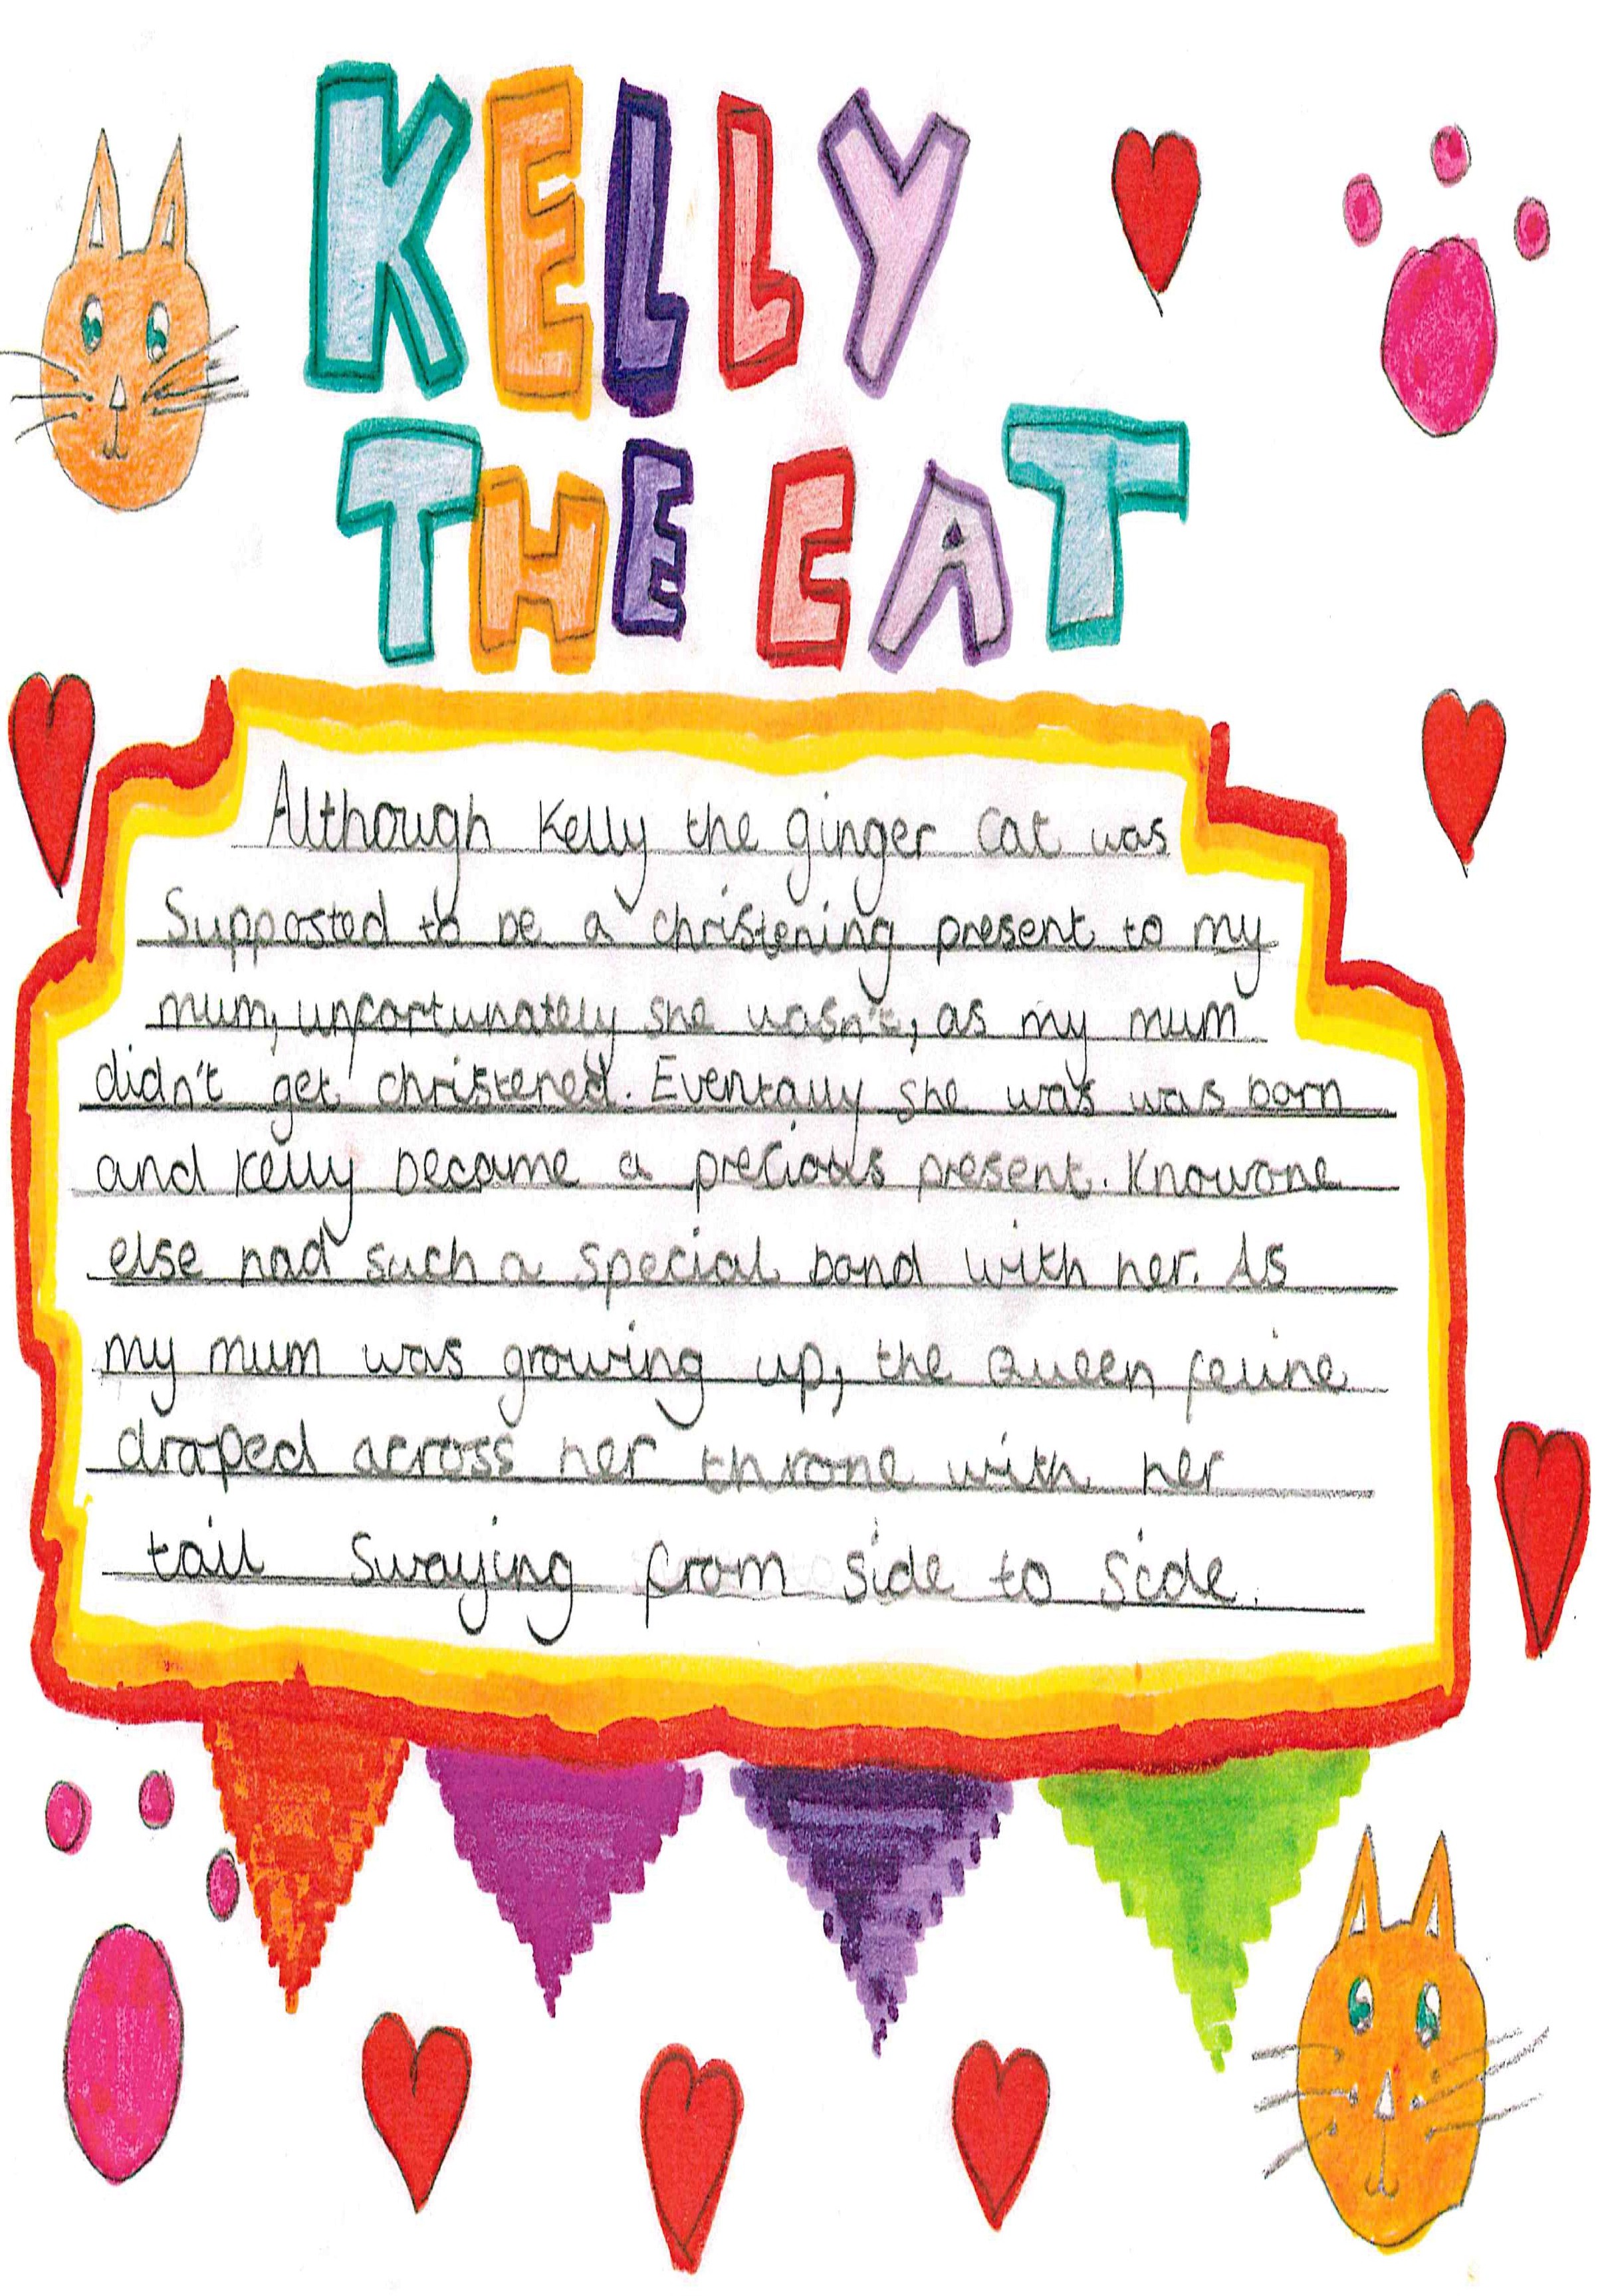 KELLY
THE CAT
Although Kelly the ginger cat was
Supposted to be a christening present to my
mum, unfortunately she wasn't, as my mum
didn't get christened. Eventally she was was born
and Kelly became a precious present. Knowone
else had such a special bond with her. As
my mum was growing up, the Queen feline
draped across her throne with her
tail Swaying from side to side.